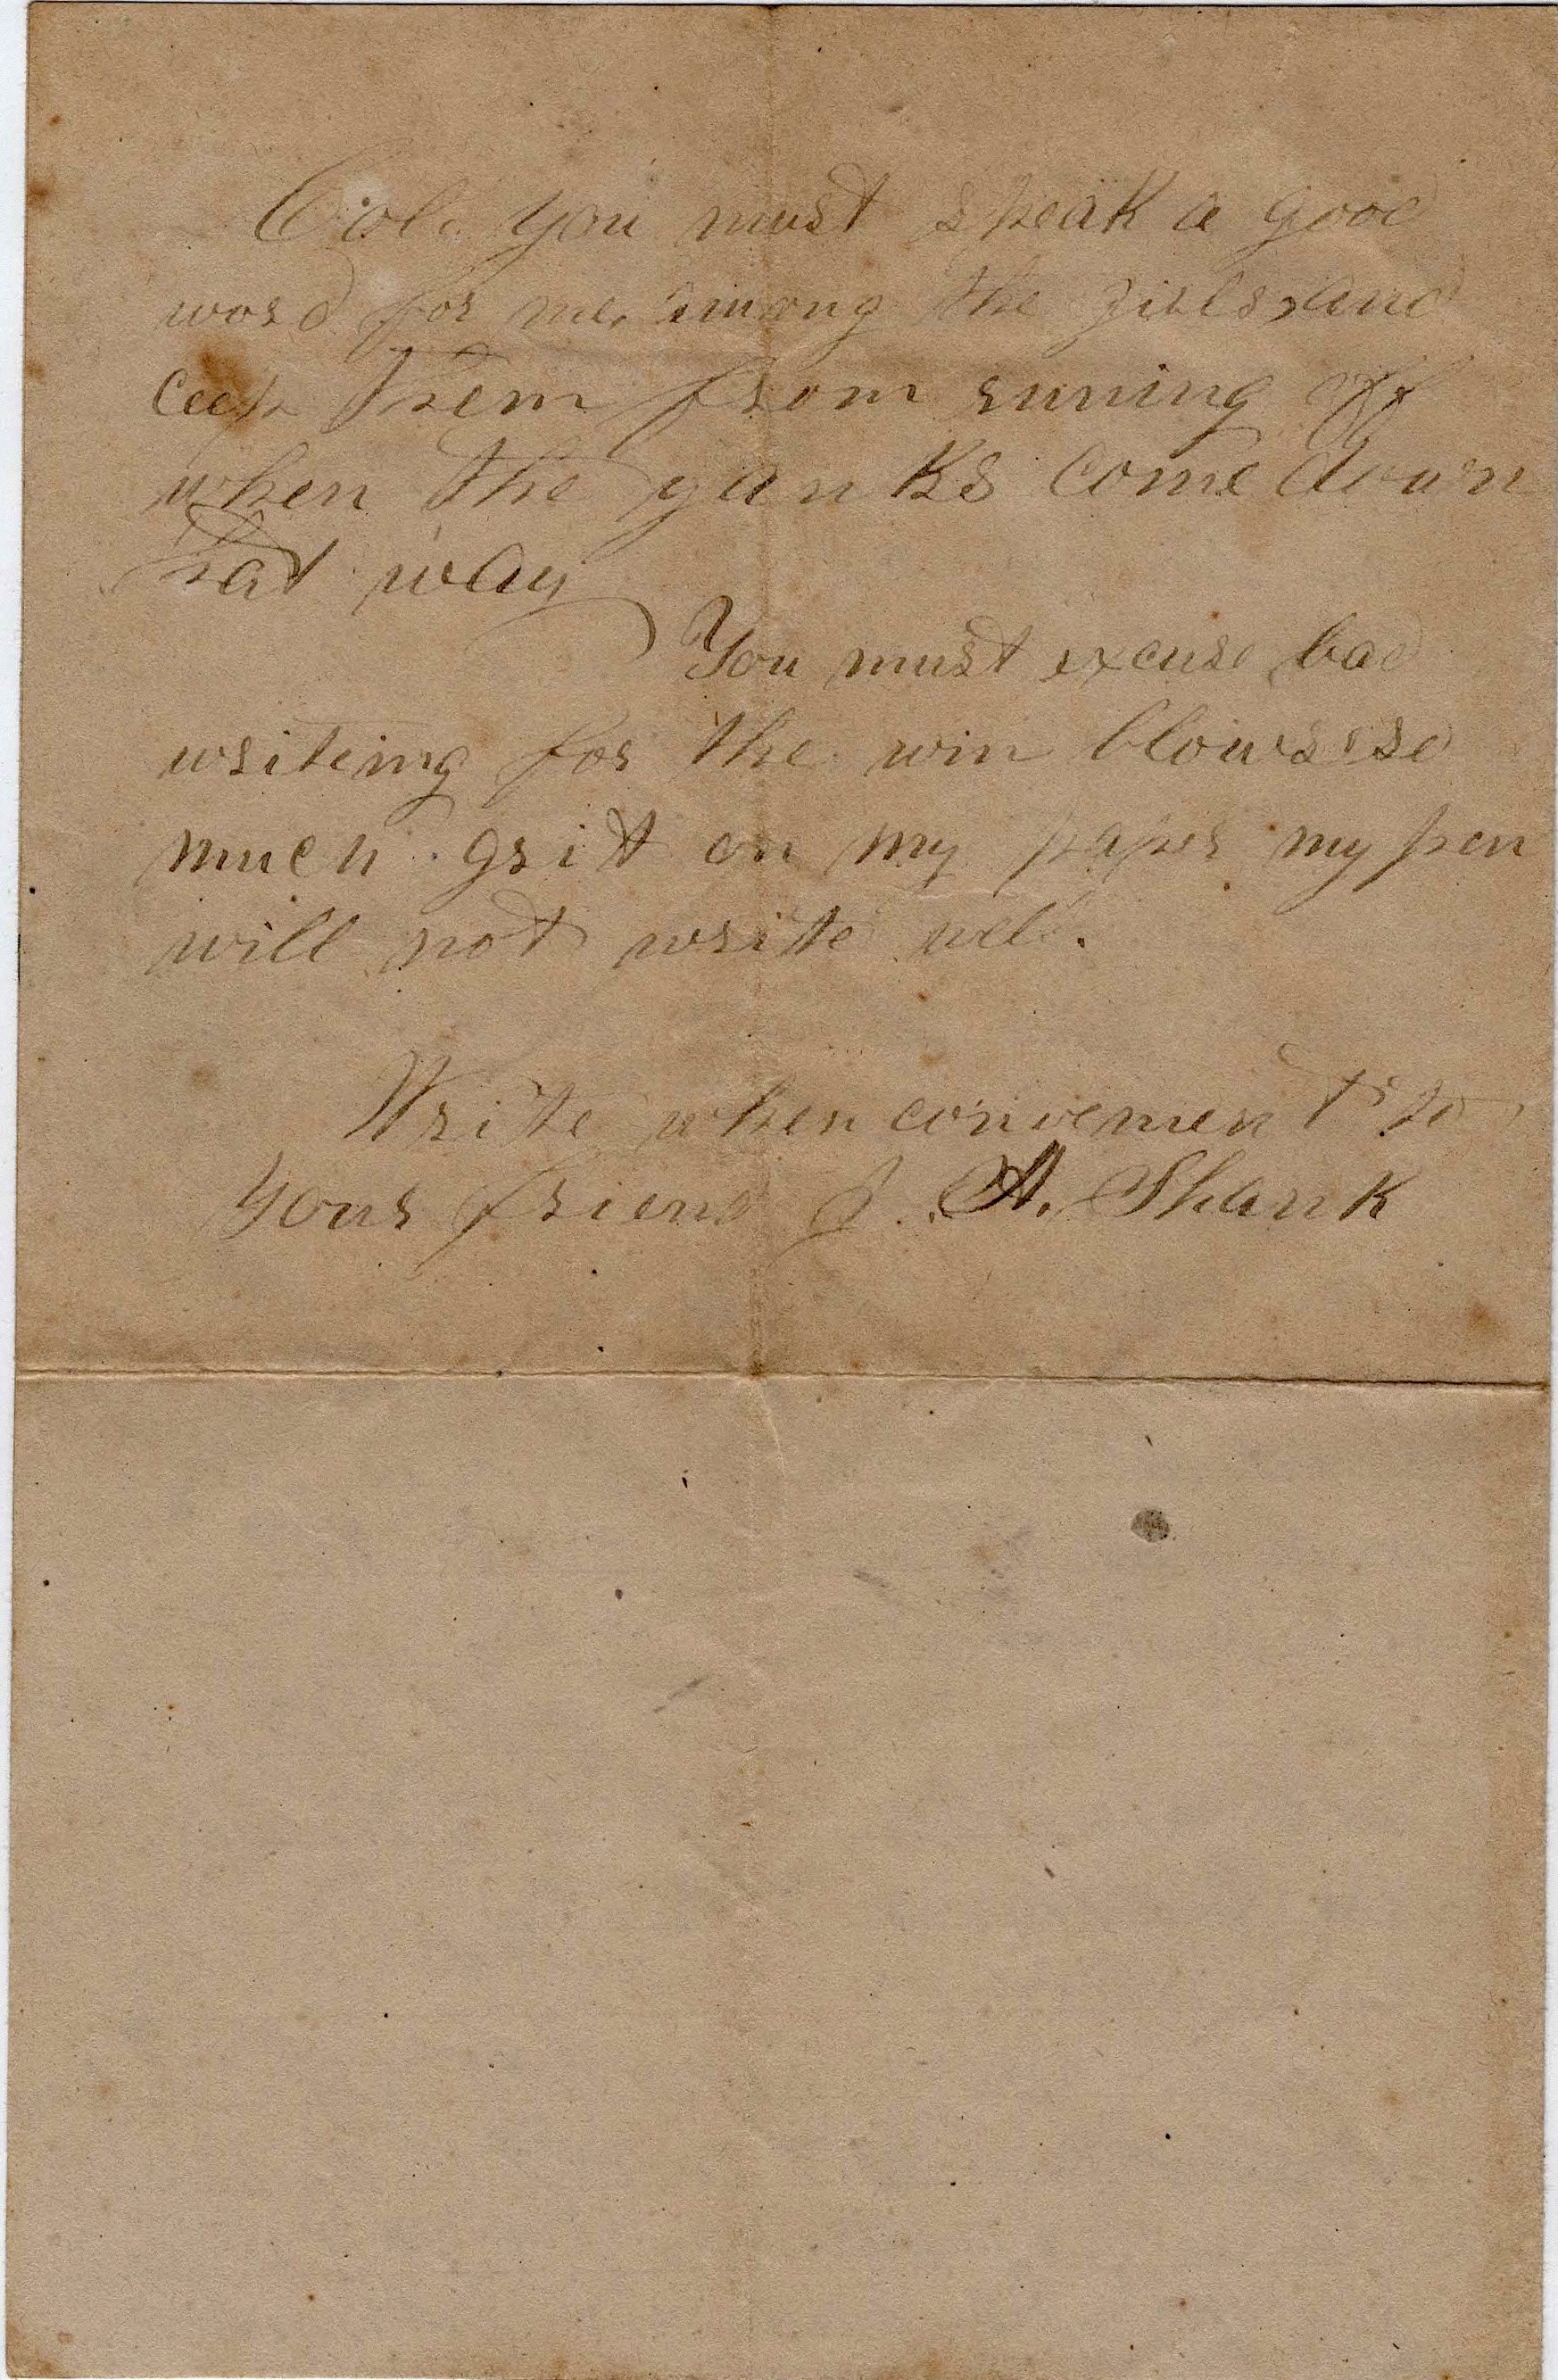 Col. you must speak a good
word for me, among the girls, and
ceep them from runing off
when the yanks come down
that way
You must excuse bad
writeing for the win blows so
much grit on my paper my pen
will not write well.
Write when convenient to
your friend J. A. Shank